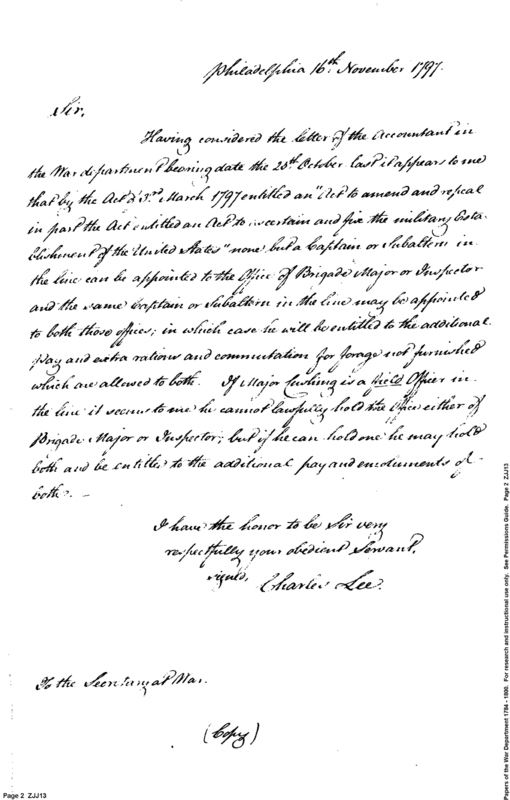 Philadelphia 16th November 1797.
Sir,
Having considered the letter of the Accountant in
the War department bearing date the 20th October last it appears to me
that by the Act of 3rd March 1797 entitled an "Act to amend and repeal
in part the Act entitled an Act to ascertain and fix the military Esta-
blishment of the United States" none but a Captain or Subaltern in
the line can be appointed to the Office of Brigade Major or Inspector
and the same Captain or Subaltern in the line may be appointed
to both those offices; in which case he will be entitled to the additional
pay and extra rations and commutation for forage not furnished
which are allowed to both. If Major Cushing is a field Officer in
the line it seems to me he cannot lawfully hold the Office either of
Brigade Major or Inspector; but if he can hold one he may hold
both and be entitled to the additional pay and emoluments of
both. —
I have the honor to be Sir very
respectfully your obedient Servant,
signed, Charles Lee.
To the Secretary at War.
(Copy)
Page 2 ZJJ13
Papers of the War Department 1784 - 1800. For research and instructional use only. See Permissions Guide. Page 2 ZJJ13